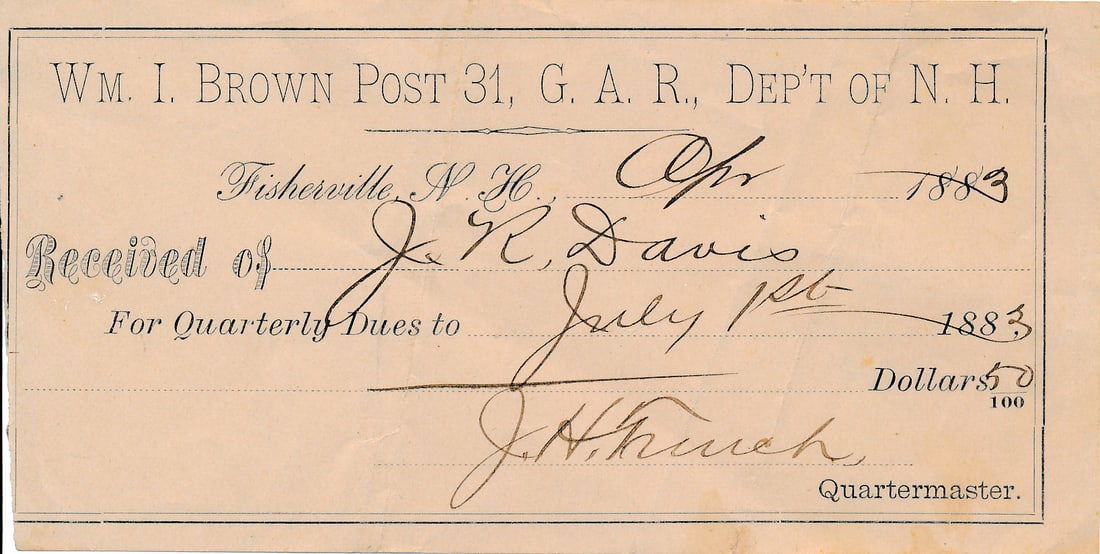 WM. I. BROWN POST 31, G. A. R., DEP'T OF N. H.
Fisherville, N. H., Apr 1883
Received of J. R. Davis
For Quarterly Dues to July 1st 1883
Dollars 50/100
J. H. French,
Quartermaster.